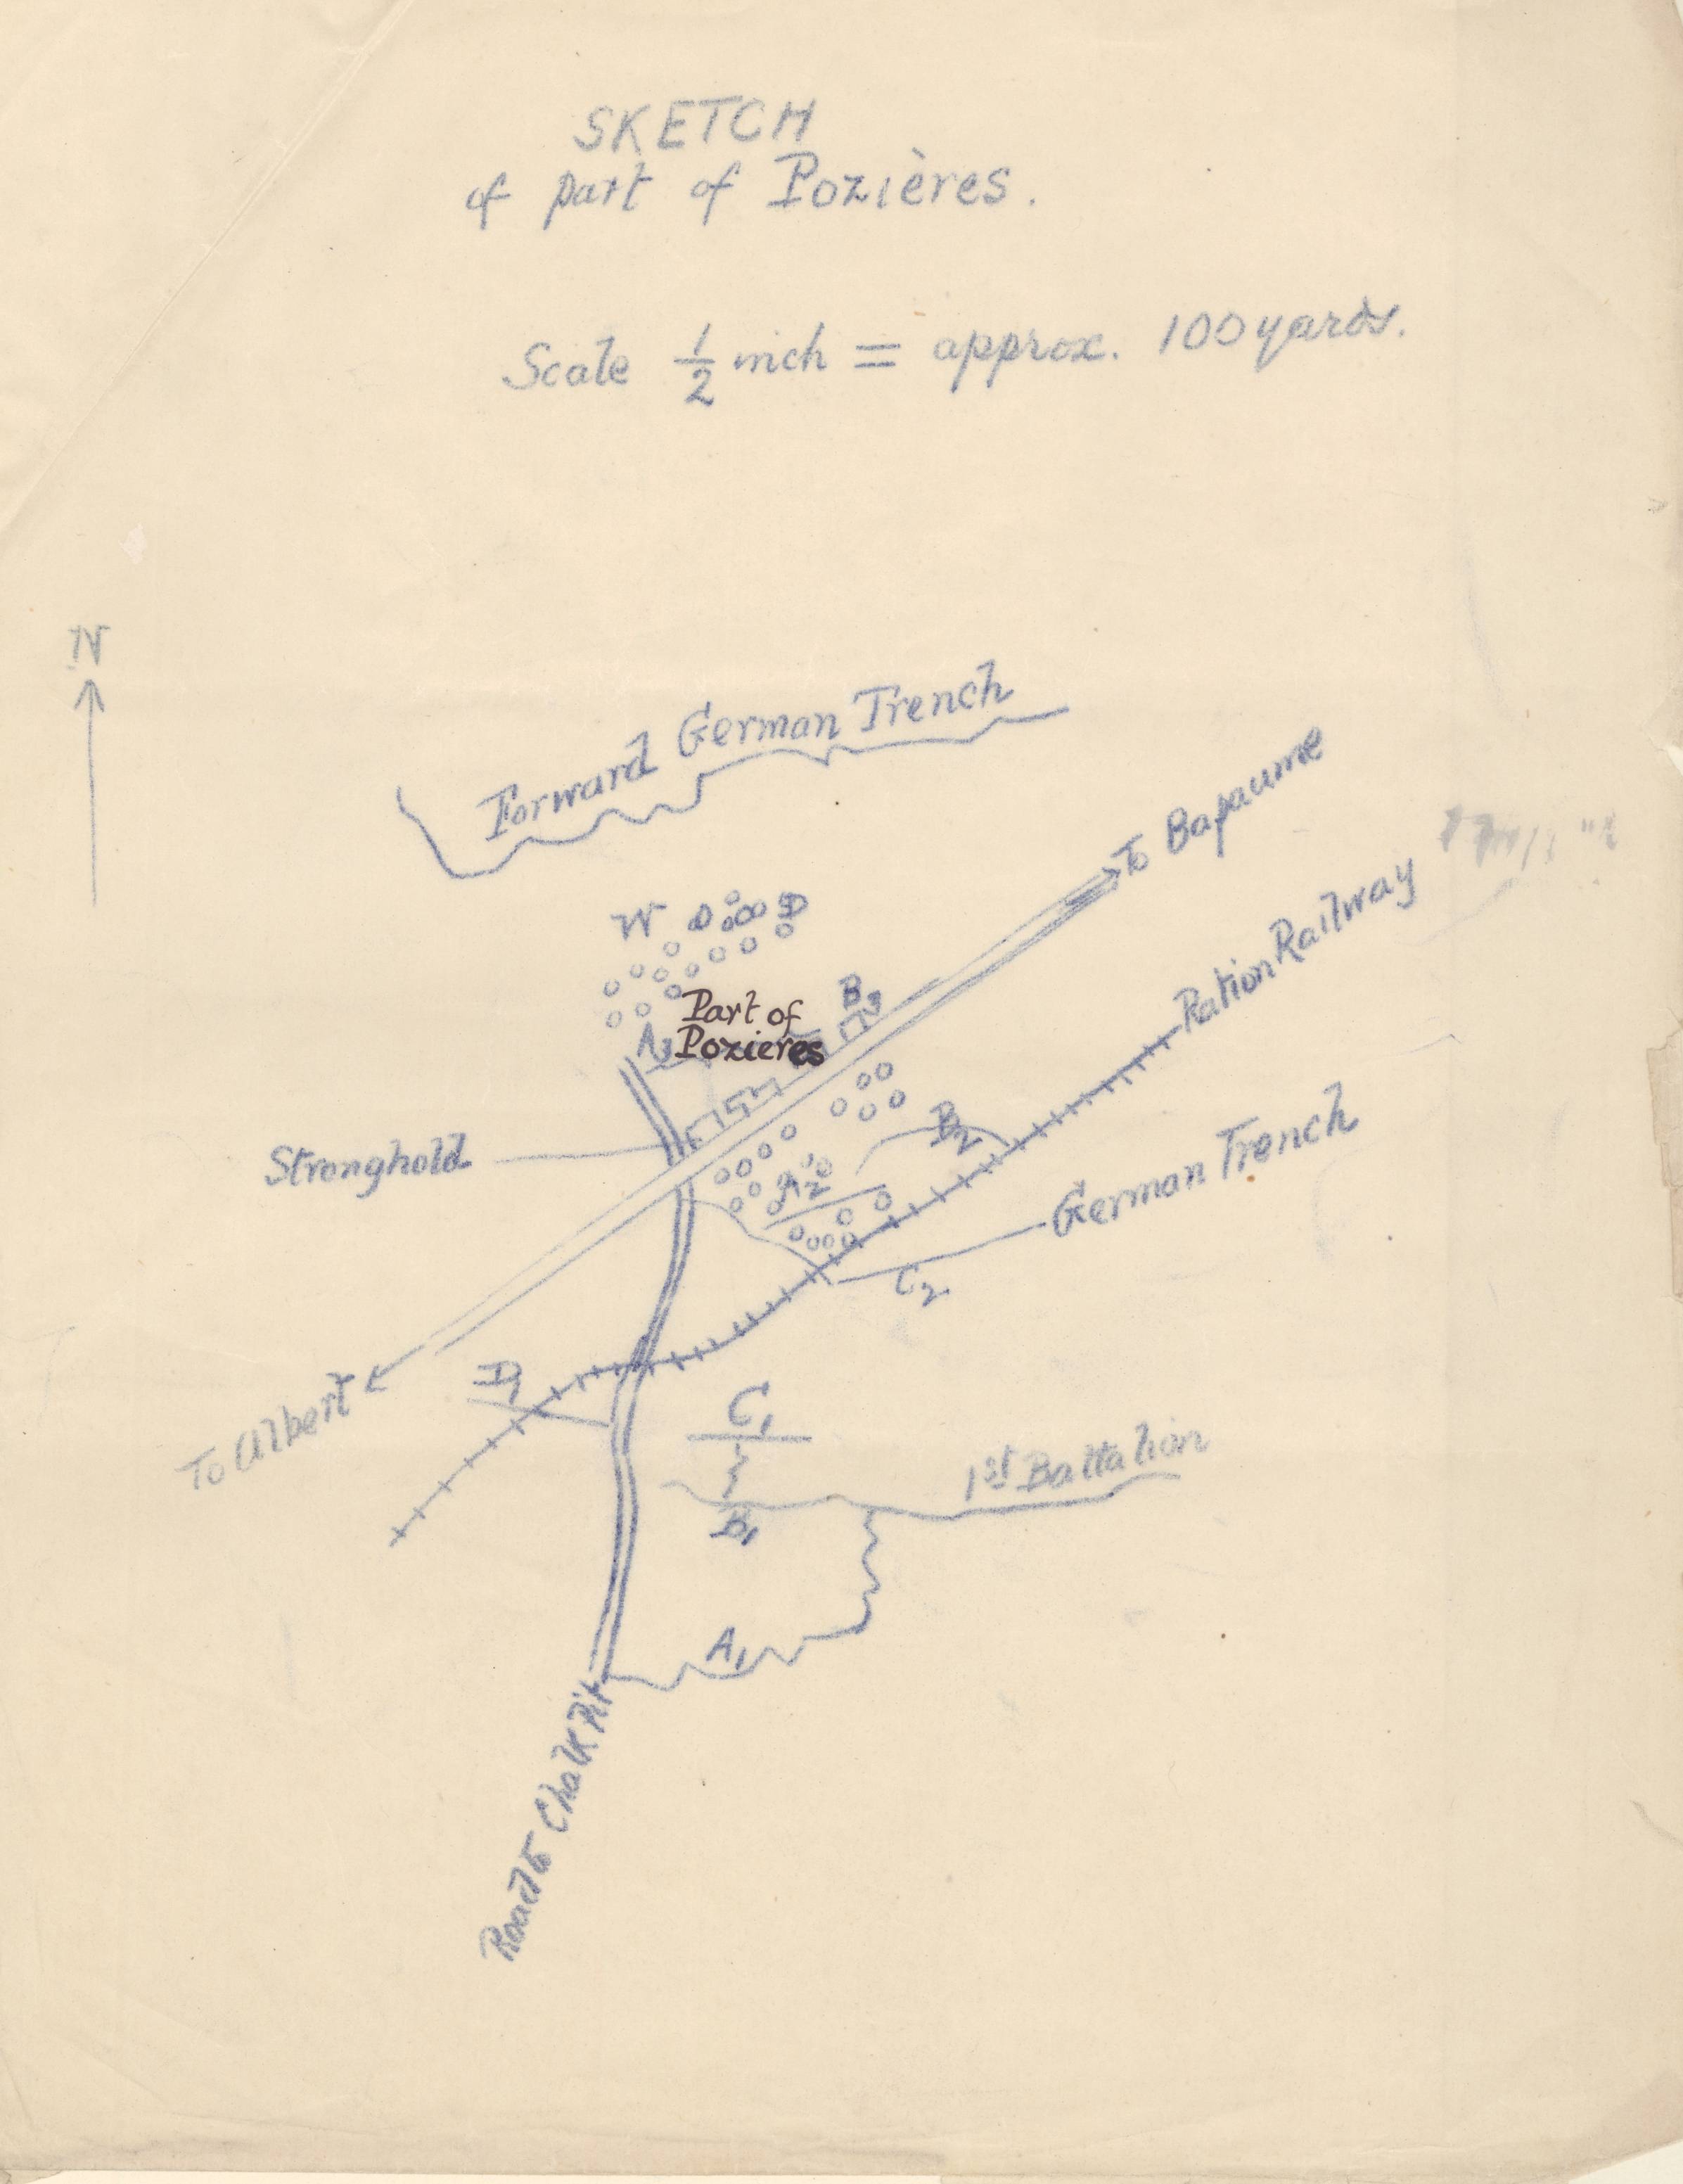 SKETCH
of part of Pozières.
Scale 1/2 inch = approx. 100 yards.
N
Forward German Trench
To Bapaume
Ration Railway
WOOD
B3
Part of
Pozieres
A3
Stronghold
B2
A2
German Trench
C2
To Albert
D1
C1
1st Battalion
B1
A1
Road to Chalk Pit